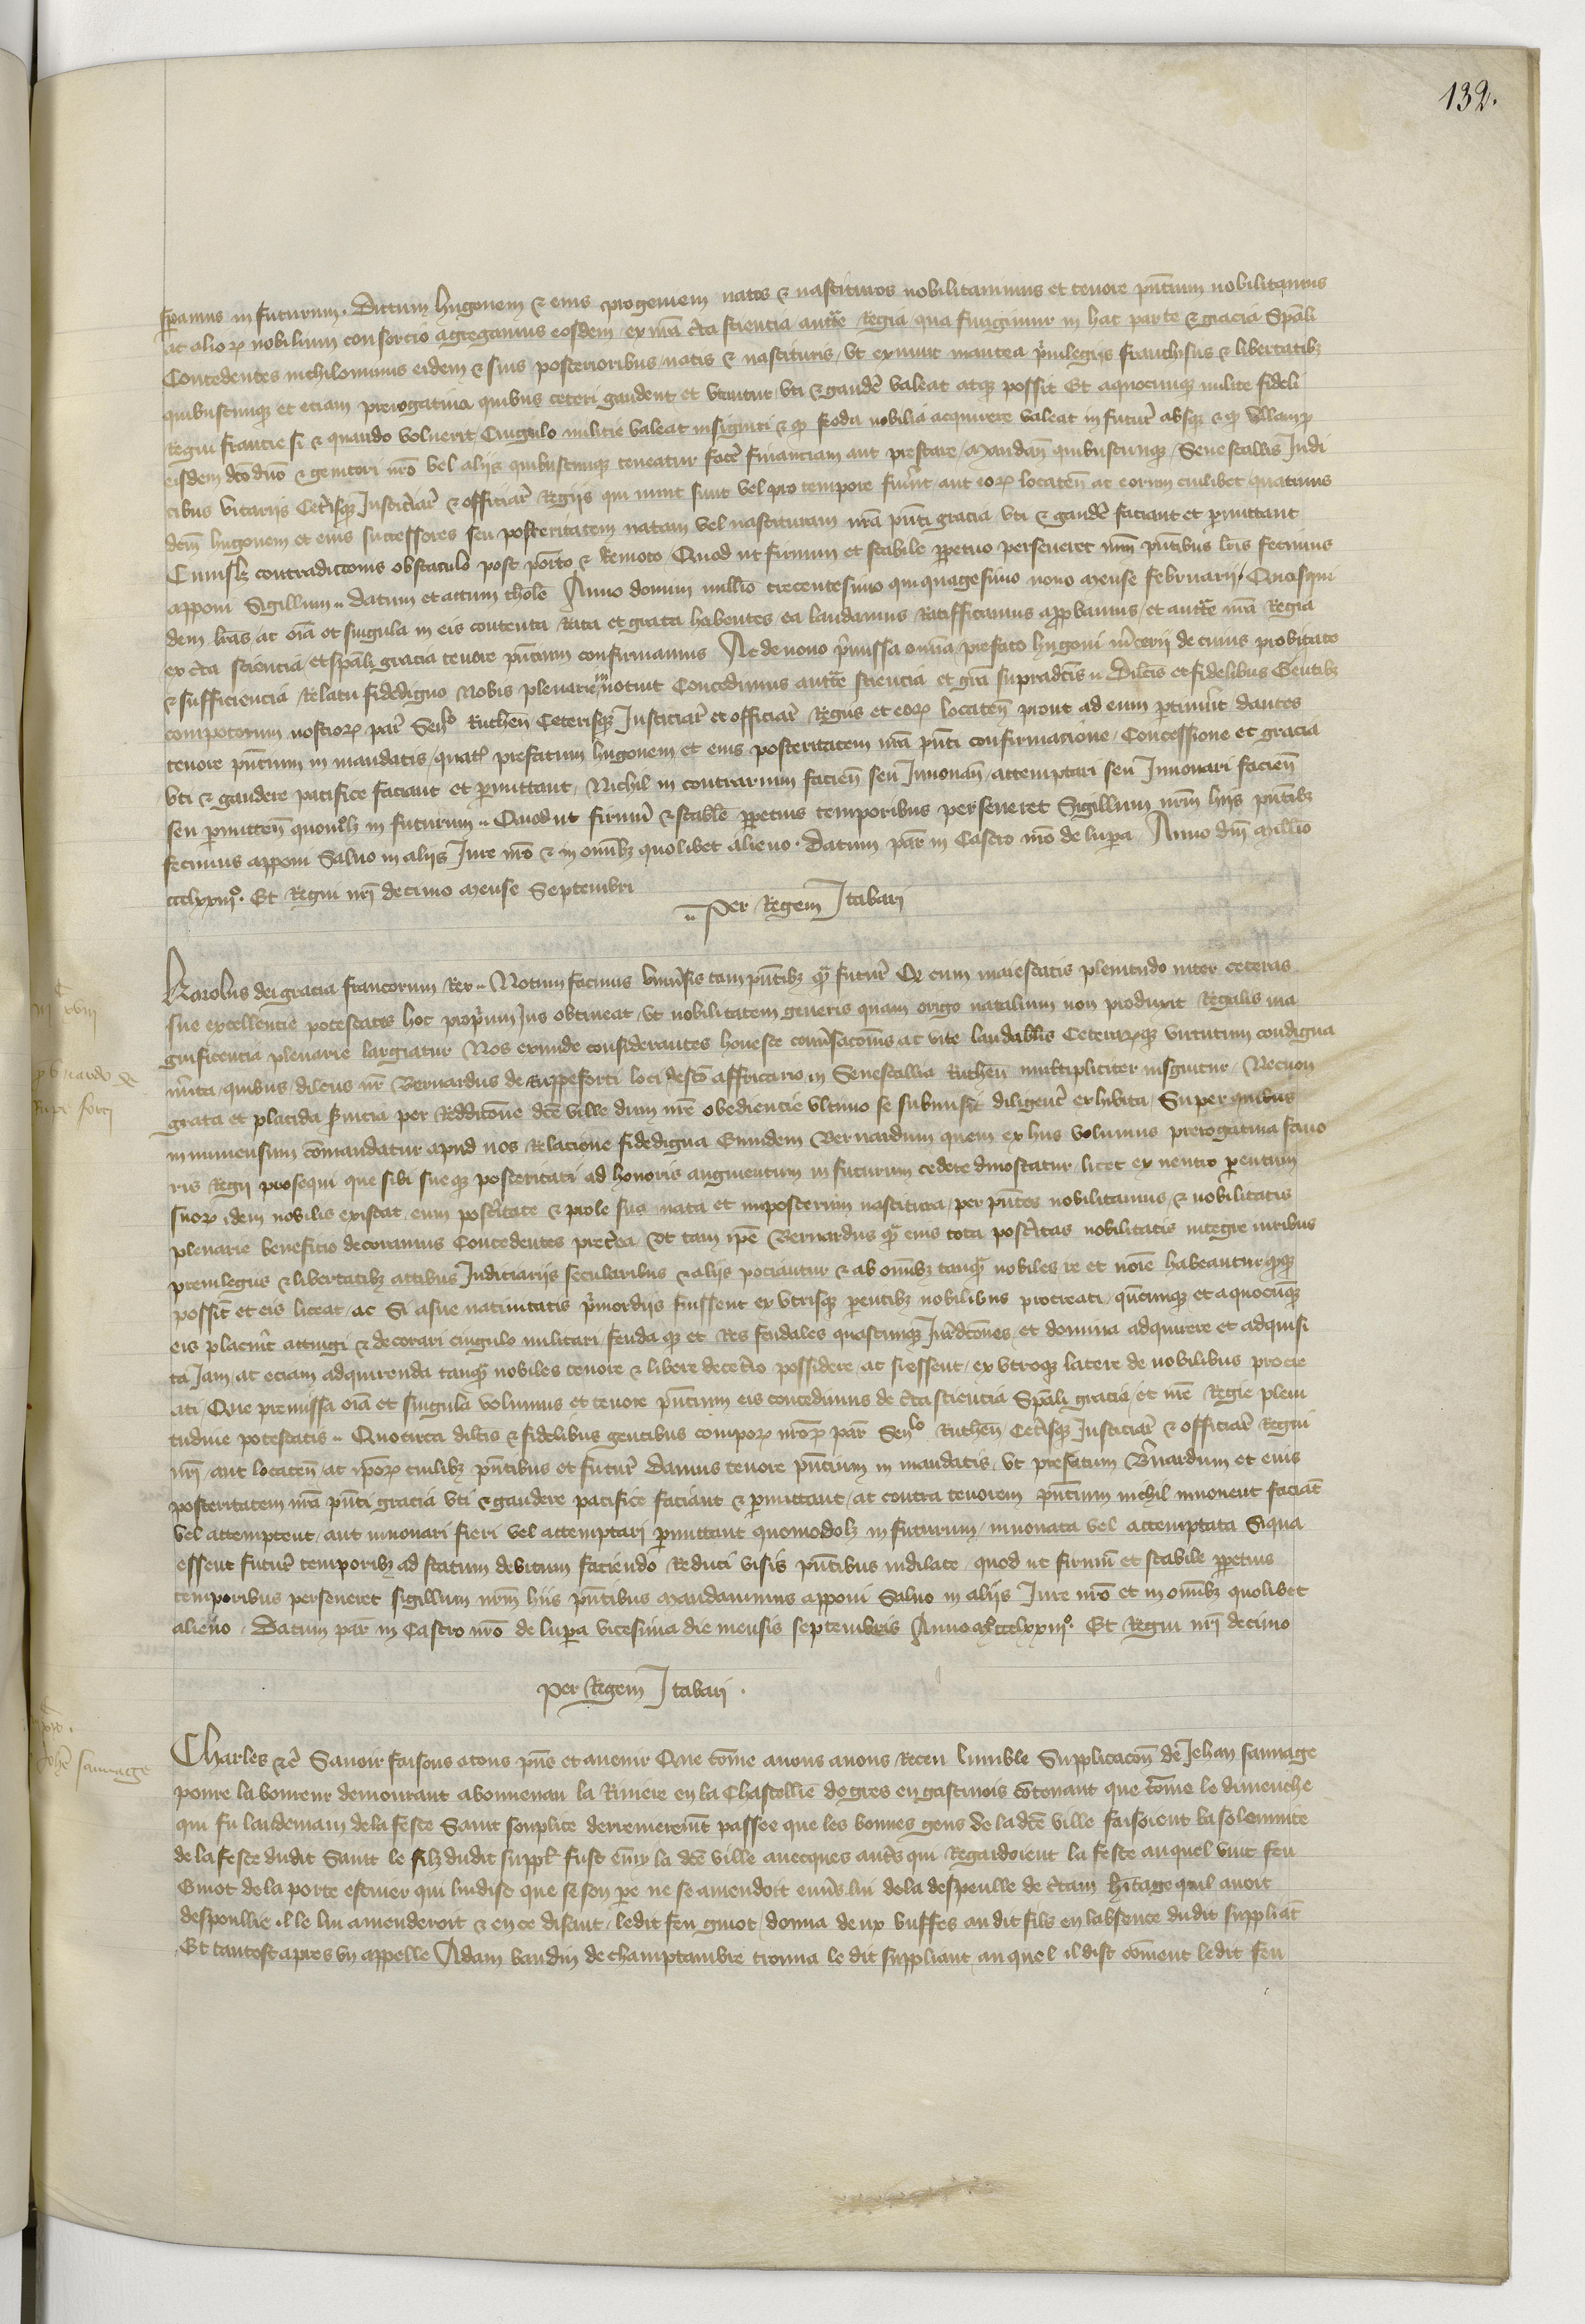 132.
speramus in futurum. Dictum hugonem & eius progeniem natos & nascituros nobilitavimus et tenore pñtium nobilitamus
ac alioꝝ nobilium consorcio agregamus eosdem ex nrã c̃ta sciencia auctẽ Regia qua fungimur in hac parte & gracia Sp̃ali
Concedentes nichilominus eidem & suis posterioribus natis & nascituris, vt ex nunc in antea p̃uilegijs franchisiis & libertatibꝫ
quibuscumqꝫ et eciam prerogatiua quibus ceteri gaudent et vtuntur vti & gaudẽ valeat atqꝫ possit Et a quocumqꝫ milite fideli
Regni francie si & quando voluerit Cingulo milicie valeat insigniri & qꝫ feoda nobilia acquirere valeat in futur̃ absqꝫ eo qꝫ vllamqꝫ
eisdem dc̃o dño & genitori nrõ vel alijs quibuscumqꝫ teneatur facẽ financiam aut prestare, Mandañ quibuscumqꝫ Senescallis Judi
cibus vicarijs Cet̃isqꝫ Justiciar̃ & officiar̃ Regijs qui nunc sunt vel pro tempore fuer̃nt aut eoꝝ locateñ ac eorum cuilibet quatinus
dem̃ hugonem et eius successores seu posteritatem natam vel nascituram nrã pñti gracia vti & gaudẽ faciant et p̱mittant
Cuiuslꝫ contradictionis obstaculo post põito & Remoto Quod ut firmum et stabile p̱petuo perseueret nrm̃ pñtibus lrĩs fecimus
apponi Sigillum .. datum et actum tholẽ Anno domini millĩo trecentesimo quiquagesimo nono mense februarij. Quasqui
dem lrãs ac oĩa et singula in eis contenta Rata et grata habentes ea laudamus Ratifficamus app̱bamus, et auctẽ nrã Regia
ex c̃ta sciencia et sp̃ali gracia tenore pñtium confirmamus Ac de nouo p̃missa omnia prefato hugoni m̃cerij de cuius probitate
& sufficiencia Relatu fidedigno Nobis plenarie innotuit Concedimus auctẽ sciencia et grã supradc̃is .. Dilc̃is et fidelibus Gentibꝫ
compotorum nostroꝝ par̃ Seño Rutheñ Ceterisqꝫ Justiciar̃ et officiar̃ Regiis et eoꝝ locateñ prout ad eum p̱tinuer̃t dantes
tenore pñtium in mandatis, quatꝰ prefatum hugonem et eius posteritatem nrã pñti confirmacione, Concessione et gracia
vti & gaudere pacifice faciant et p̱mittant, Nichil in contrarium facieñ seu Innouañ, attemptari seu Innouari facieñ
seu p̱mitteñ quouislꝫ in futurum .. Quod ut firmũ & stablẽ p̱petuis temporibus perseueret Sigillum nrm̃ hijs pñtibꝫ
fecimus apponi Saluo in alijs Jure nrõ & in omĩbꝫ quolibet alieno. Datum par̃ in Castro nrõ de lup̱a Anno dñi Millĩo
ccclxxiijo. Et Regni nrĩ decimo mense Septembri
.. Per Regem J tabari
Karolus dei gracia francorum Rex .. Notum facimus vniũsis tam pñtibꝫ qꝫ futur̃ Qꝫ cum maiestatis plenitudo inter ceteras
sue excellencie potestates hoc prop̃rium Jus obtineat, vt nobilitatem generis quam origo natalium non produxit Regalis ma
gnificencia plenarie largiatur Nos exinde considerantes honeste conũsacõnis ac vite laudablis Ceterarꝝqꝫ virtutum condigna
m̃ita, quibus, dilcũs nr̃ Bernardus de Ruppeforti loci de scõ affricano in Senescallia Rutheñ multipliciter insignitur, Necnon
grata et placida s̃uicia per Reddicõne dcẽ ville dum nrẽ obediencie vltimo se submisit diligenẽ exhibita, Super quibus
in immensum cõmandatur apud nos Relacione fidedigna Eundem Bernardum quem ex hiis volumus prerogatiua fauo
ris Regij prosequi que sibi sueqꝫ posteritati ad honoris augmentum in futurum cedere dinoscatur, licet ex neutro parentum
suoꝝ idem nobilis existat, eum post̃itate & prole sua nata et imposterum nascitura, per pñtes nobilitamus, & nobilitatis
plenarie beneficio decoramus Concedentes pret̃ea vt tam ip̃e Bernardus qꝫ eius tota post̃itas nobilitatis integre iuribus
preuilegiis & libertatibꝫ actibus Judiciarijs secularibus & alijs pociantur & ab omĩbꝫ tanqꝫ nobiles re et noĩe habeantur, qꝫqꝫ
possiñt et eis liceat, ac Si a sue natiuitatis p̃mordijs fuissent ex vtrisqꝫ parentibꝫ nobilibus procreati, quẽcunqꝫ et a quocũqꝫ
eis placuer̃t attingi & decorari cingulo militari, feuda qꝫ et Res feudales quascunqꝫ Jur̃dcõnes, et dominia adquirere et adquisi
ta Jam, ac eciam adquirenda tanqꝫ nobiles tenere & libere decet̃o possidere, ac si essent, ex vtroqꝫ latere de nobilibus procre
ati, Que premissa oĩa et singula volumus et tenore pñtium eis concedimus de c̃ta sciencia Sp̃ali gracia, et nrẽ Regie pleni
tudine potestatis .. Quocirca dilc̃is & fidelibus gentibus compoꝝ nroꝝ par̃ Seño Rutheñ Cet̃isqꝫ Justiciar̃ & officiar̃ Regni
nrĩ aut locateñ, ac ip̃oꝝ cuilibꝫ pñtibus et futur̃ damus tenore pñtium in mandatis, vt prefatum B̃nardum et eius
posteritatem nrã pñti gracia vti & gaudere pacifice faciant & p̱mittant, ac contra tenorem pñtium nichil innouent faciãt
vel attemptent, aut innouari fieri vel attemptari p̱mittant quomodolꝫ in futurum, innouata vel attemptata Siqua
essent futur̃ temporibꝫ ad statum debitum faciendo Reduci visis pñtibus indilate, quod ut firmũ et stabile p̱petuis
temporibus perseueret sigillum nrm̃ hiis pñtibus mandauimus apponi Saluo in alijs Jure nrõ et in omĩbꝫ quolibet
alieno. Datum par̃ in Castro nrõ de lup̱a vicesima die mensis septembris Anno Mo ccclxxiijo. Et Regni nrĩ decimo
Per Regem J tabari.
pro b̃nardo de
Rupe forti
Charles &c̃ Sauoir faisons a tous pñs et auenir Que cõme auons auons Receu lumble Supplicacõn de Jehan sauuage
poure laboureur demourant a bonneuau la Riuiere en la Chastelliẽ de gres en gastinois cõtenant que cõme le dimenche
qui fu lendemain de la feste Saint souplice derrenierem̃t passee que les bonnes gens de la dcẽ ville faisoient la solennite
de la feste dudit Saint le filz dudit suppl̃ fust em̃y la dcẽ ville auecques aut̃s qui Regardoient la feste auquel vint feu
Guiot de la porte escuier qui lui dist que se son pe̱ ne se amendoit enũs lui de la despeulle de c̃tain h̃itage quil auoit
despoullie il le lui amenderoit & en ce disant, ledit feu guiot, donna deux buffes au dit filz en labsence dudit suppliãt
Et tantost apres vn appelle Adam baudin de champtambre trouua le dit suppliant auquel il dist cõment ledit feu
pro.
Joh̃e sauuage